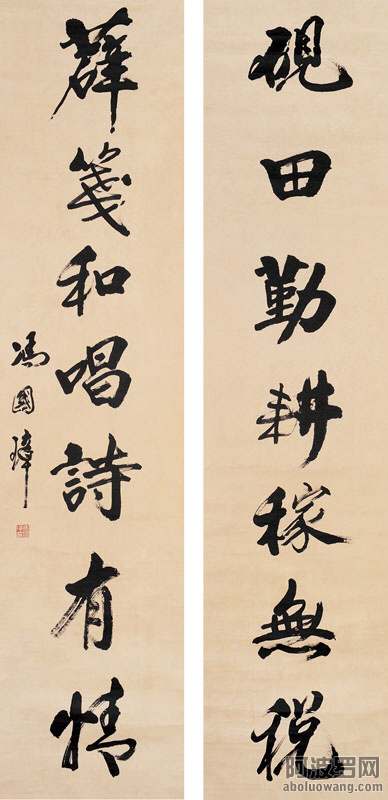 硯田勤耕稼無稅
薛箋和唱詩有情
馮國璋
阿波罗网
aboluowang.com